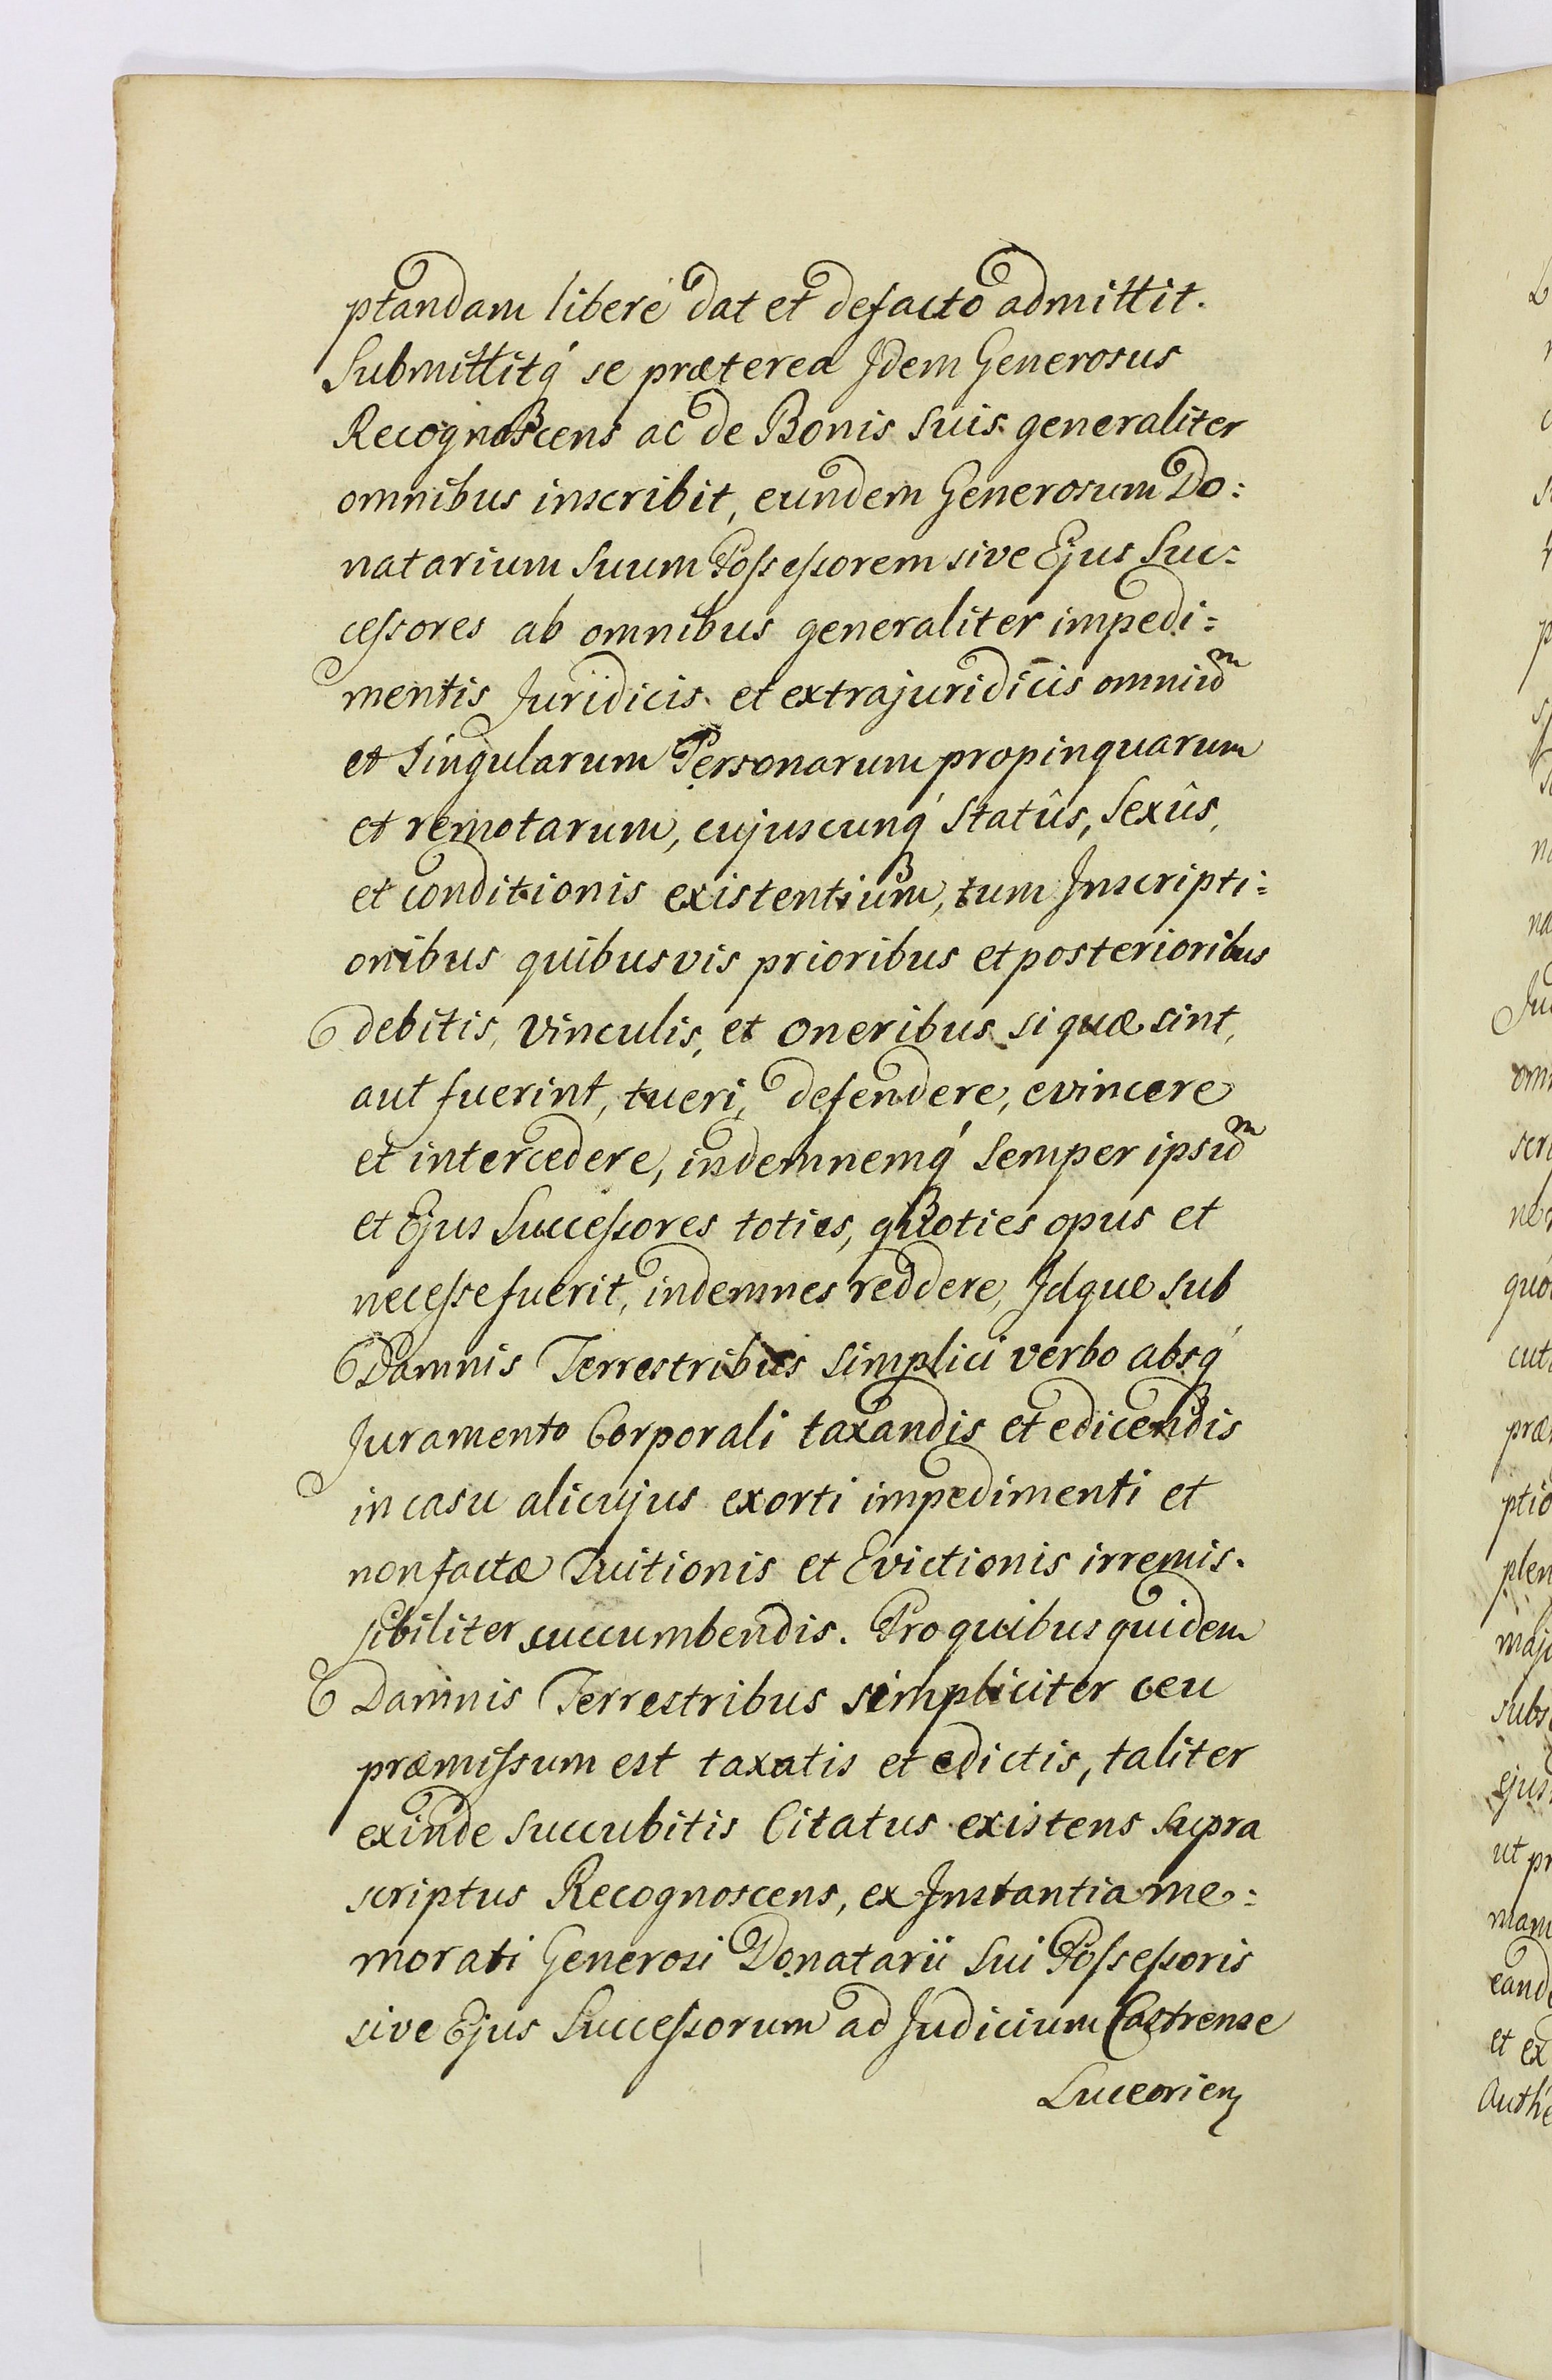 ptandam liberé dat et defacto admittit.
Submittitq́ se præterea Idem Generosus
Recognoscens ac de Bonis Suis generaliter
omnibus inscribit, eundem Generosum Do:
natarium Suum Possessorem sive Ejus Suc:
cessores ab omnibus generaliter impedi:
mentis Juridicis et extrajuridicis omniũm
et Singularum Personarum propinquarum
et remotarum, cujuscunq́ Statûs, Sexûs,
et conditionis existentium, tum Inscripti:
onibus quibusvis prioribus et posterioribus
debitis, Vinculis, et Oneribus si quæ sint,
aut fuerint, tueri, defendere, evincere
et intercedere, indemnemq́ Semper ipsũm
et Ejus Successores toties, quoties opus et
necesse fuerit, indemnes reddere, Idque Sub
Damnis Terrestribus Simplici verbo absq́
Juramento Corporali taxandis et edicendis
in casu alicujus exorti impedimenti et
non factæ Tuitionis et Evictionis irremis.
sibiliter succumbendis. Pro quibus quidem
Damnis Terrestribus simpliciter ceu
præmissum est taxatis et edictis, taliter
exinde Succubitis Citatus existens Supra
scriptus Recognoscens, ex Instantia me:
morati Generosi Donatarii Sui Possessoris
sive Ejus Successorum ad Judicium Castrense
Luceorien